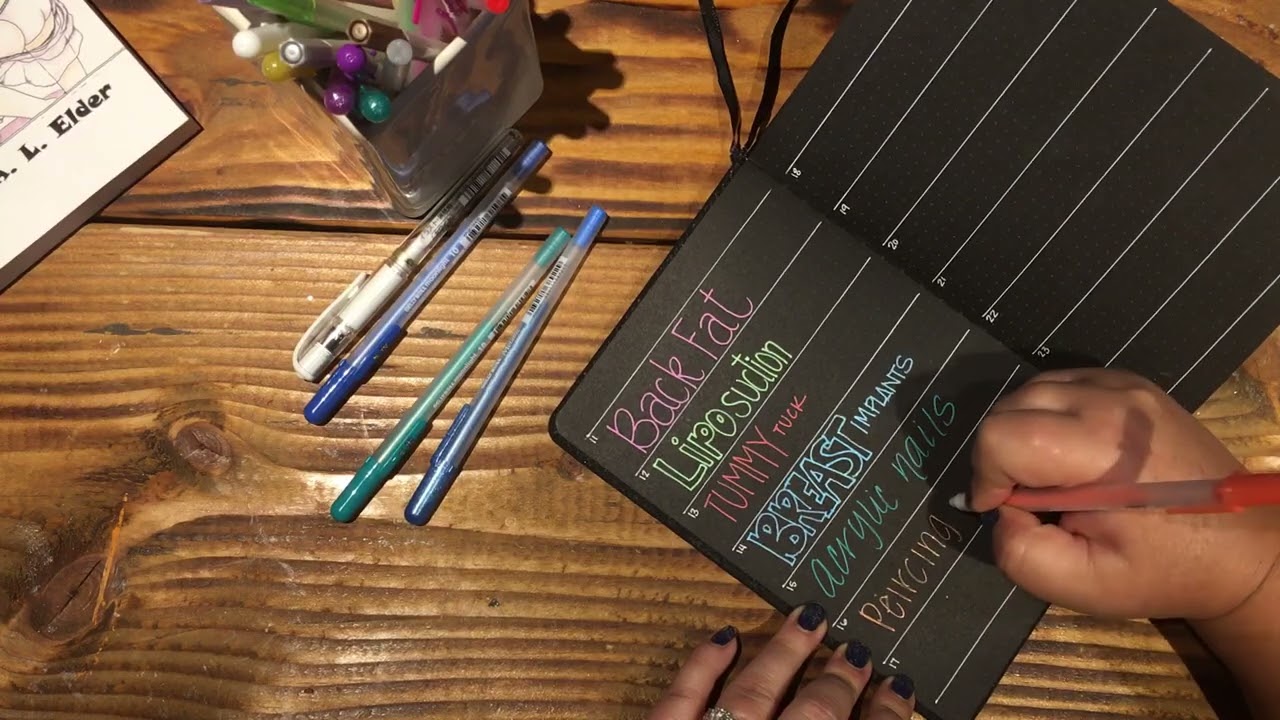 A. L. Elder
18
19
20
21
22
23
11 Back Fat
12 Liposuction
13 TUMMY TUCK
14 BREAST IMPLANTS
15 acrylic nails
16 Peircing
17